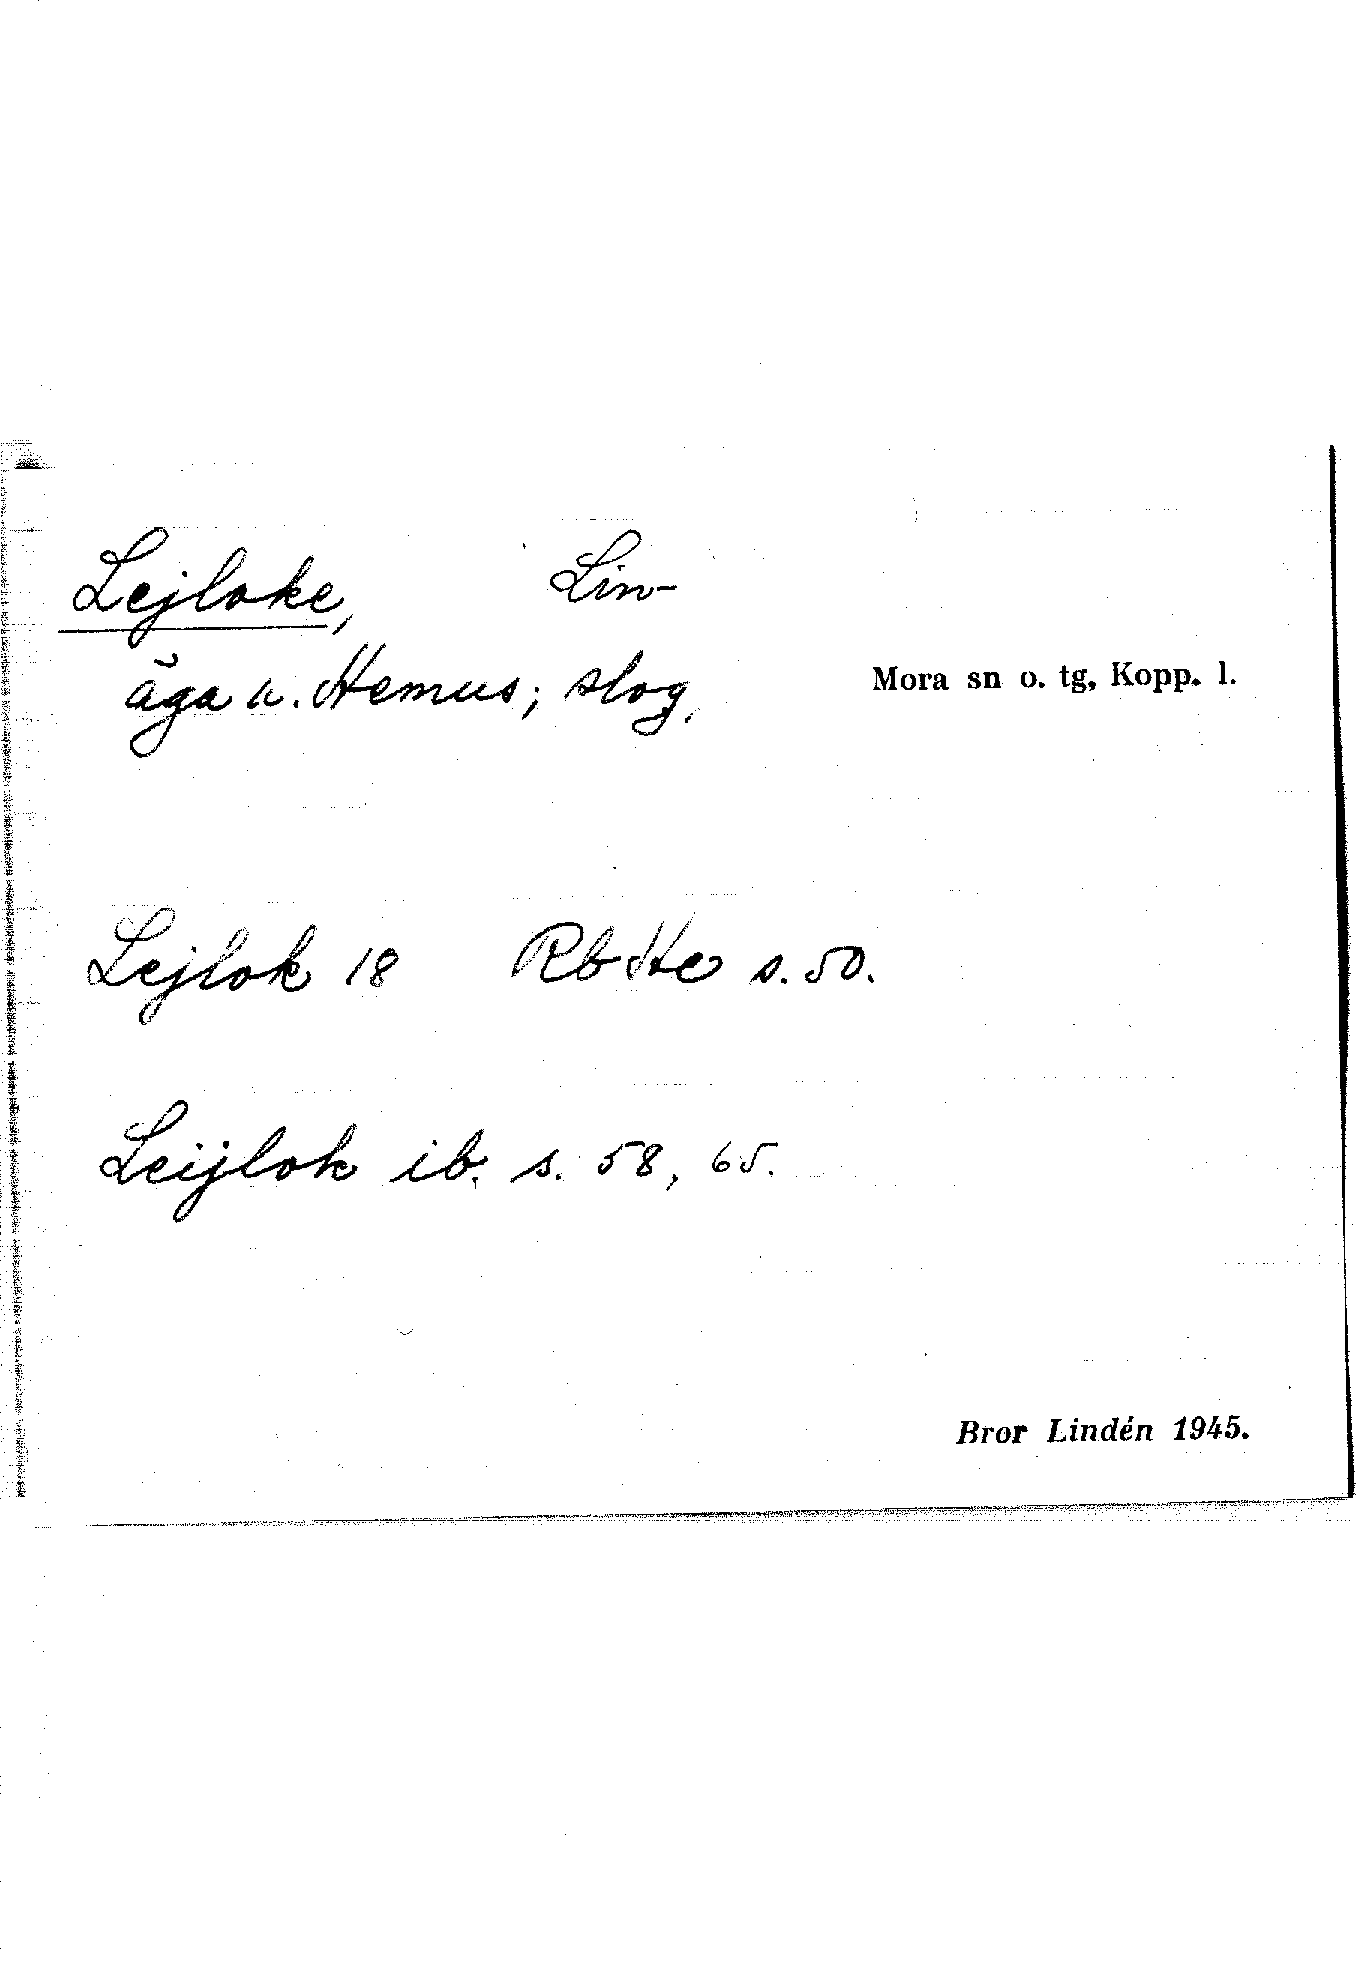 Lejloke, Lin-
äga u. Hemus; slog.
Mora sn o. tg, Kopp. l.
Lejlok 18 Rb He s. 50.
Leijlok ib. s. 58, 65.
Bror Lindén 1945.